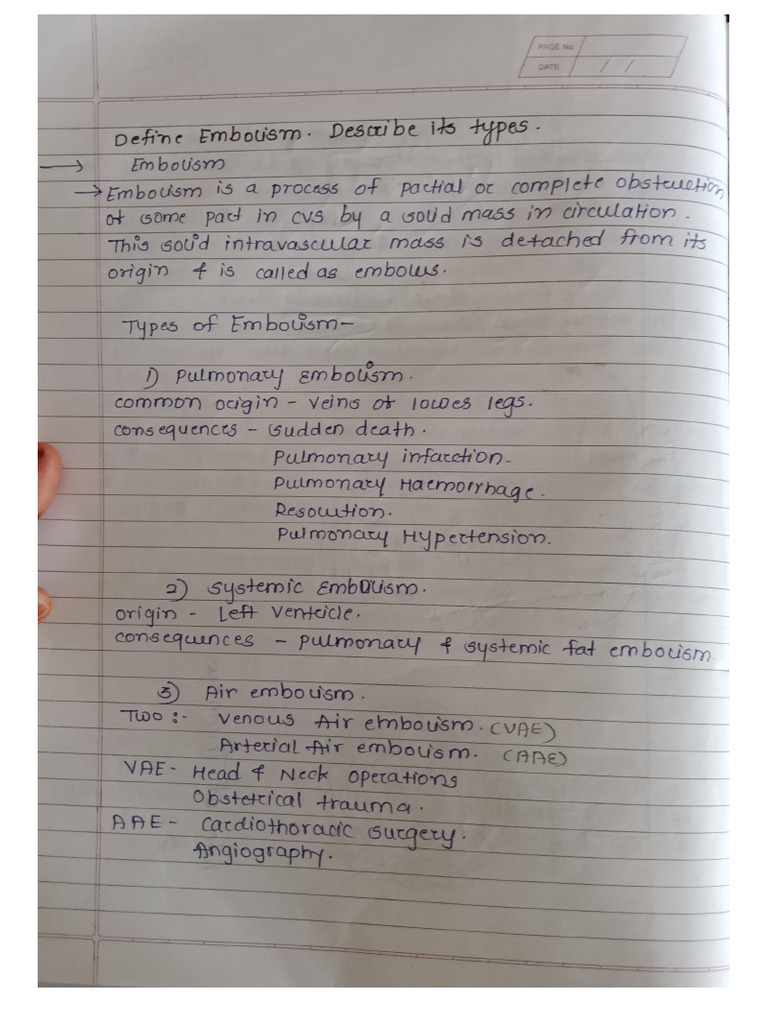 PAGE No.
DATE / /
Define Embolism. Describe its types.
→ Embolism
→ Embolism is a process of partial or complete obstruction
of some part in CVS by a solid mass in circulation.
This solid intravascular mass is detached from its
origin & is called as embolus.
Types of Embolism-
1) Pulmonary embolism.
common origin - veins of lower legs.
consequences - sudden death.
Pulmonary infarction.
Pulmonary Haemorrhage.
Resolution.
Pulmonary Hypertension.
2) Systemic embolism.
origin - Left ventricle.
consequences - pulmonary & systemic fat embolism.
3) Air embolism.
Two :- Venous Air embolism. (VAE)
Arterial Air embolism. (AAE)
VAE - Head & Neck operations
Obstetrical trauma.
AAE - Cardiothoracic surgery.
Angiography.